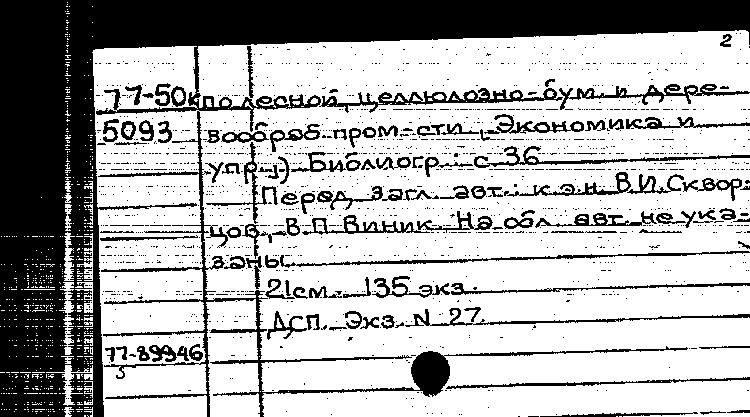 2
77-50к по лесной, целлюлозно-бум. и дере-
5093 вообраб. пром-сти, Экономика и
упр.;) Библиогр.: с. 36
Перед загл. авт.: к.э.н. В.И.Сквор-
цов, В.П. Виник. На обл. авт. не ука-
заны
21см. 135 экз.
ДСП. Экз. N 27.
77-89946
5